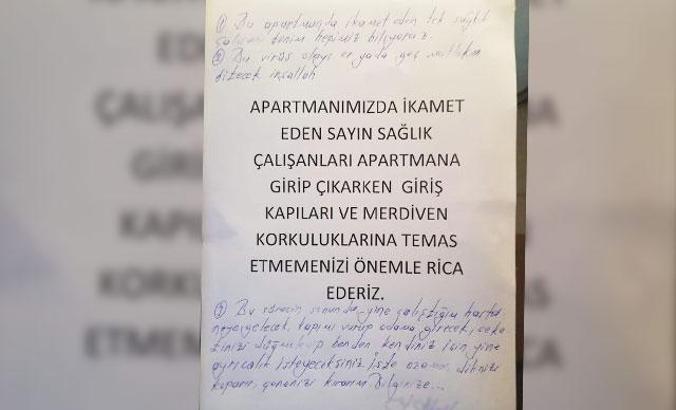 ① Bu apartmanda ikamet eden tek sağlık
çalışanı benim hepimiz biliyoruz.
② Bu virüs olayı er yada geç mutlaka
bitecek inşallah
APARTMANIMIZDA İKAMET
EDEN SAYIN SAĞLIK
ÇALIŞANLARI APARTMANA
GİRİP ÇIKARKEN GİRİŞ
KAPILARI VE MERDİVEN
KORKULUKLARINA TEMAS
ETMEMENİZİ ÖNEMLE RİCA
EDERİZ.
③ Bu sürecin sonunda, yine çalıştığım
gelecek, kapımı vurup odama girecek, ceke
tinizi düğmeleyip benden kendiniz için yine
ayrıcalık isteyeceksiniz İşte o zaman
kırarım Bilginize...